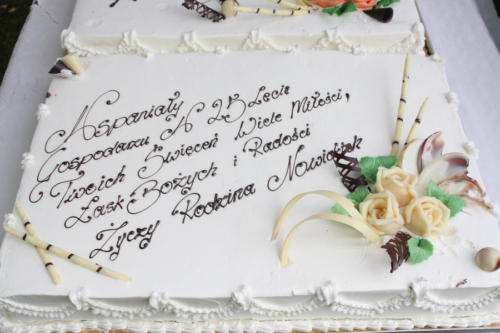 Wspaniały
Gospodarzu W 25 Lecie
Twoich Święceń Wiele Miłości,
Łask Bożych i Radości
Życzy Rodzina Nowickich